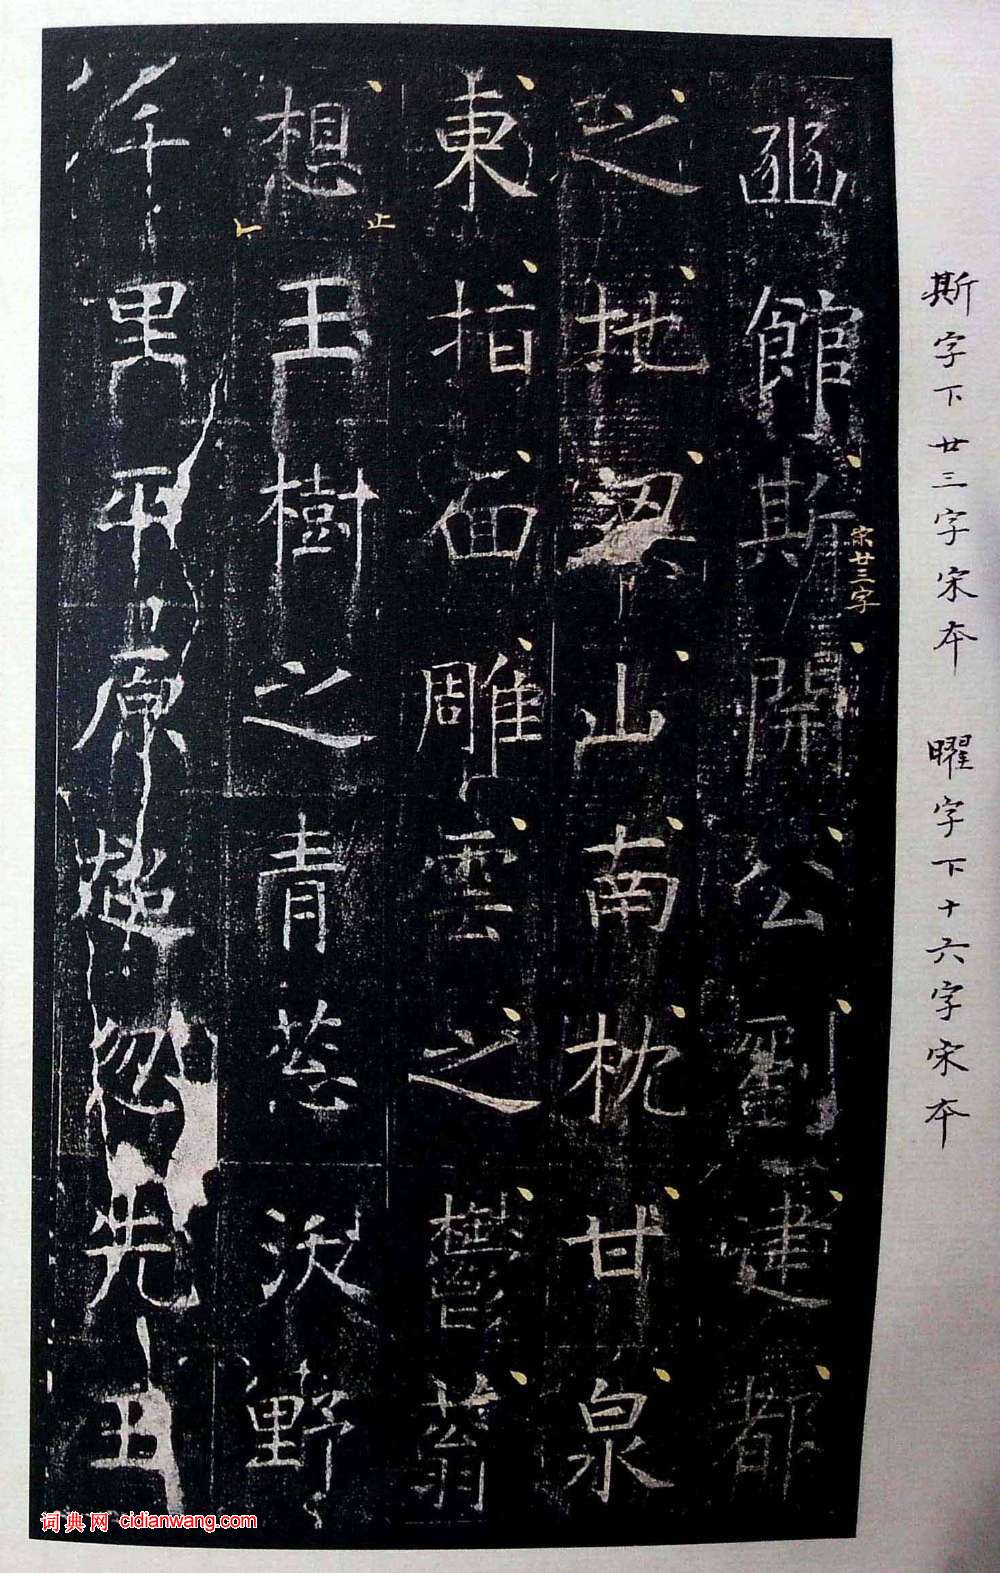 斯字下廿三字宋本 曜字下十六字宋本
豳館斯開公劉建都
宋廿三字
之地梁山南枕甘泉
東指面雕雲之鬱蓊
想王樹之青蔥沃野
止
千里平原超忽先王
词典网 cidianwang.com